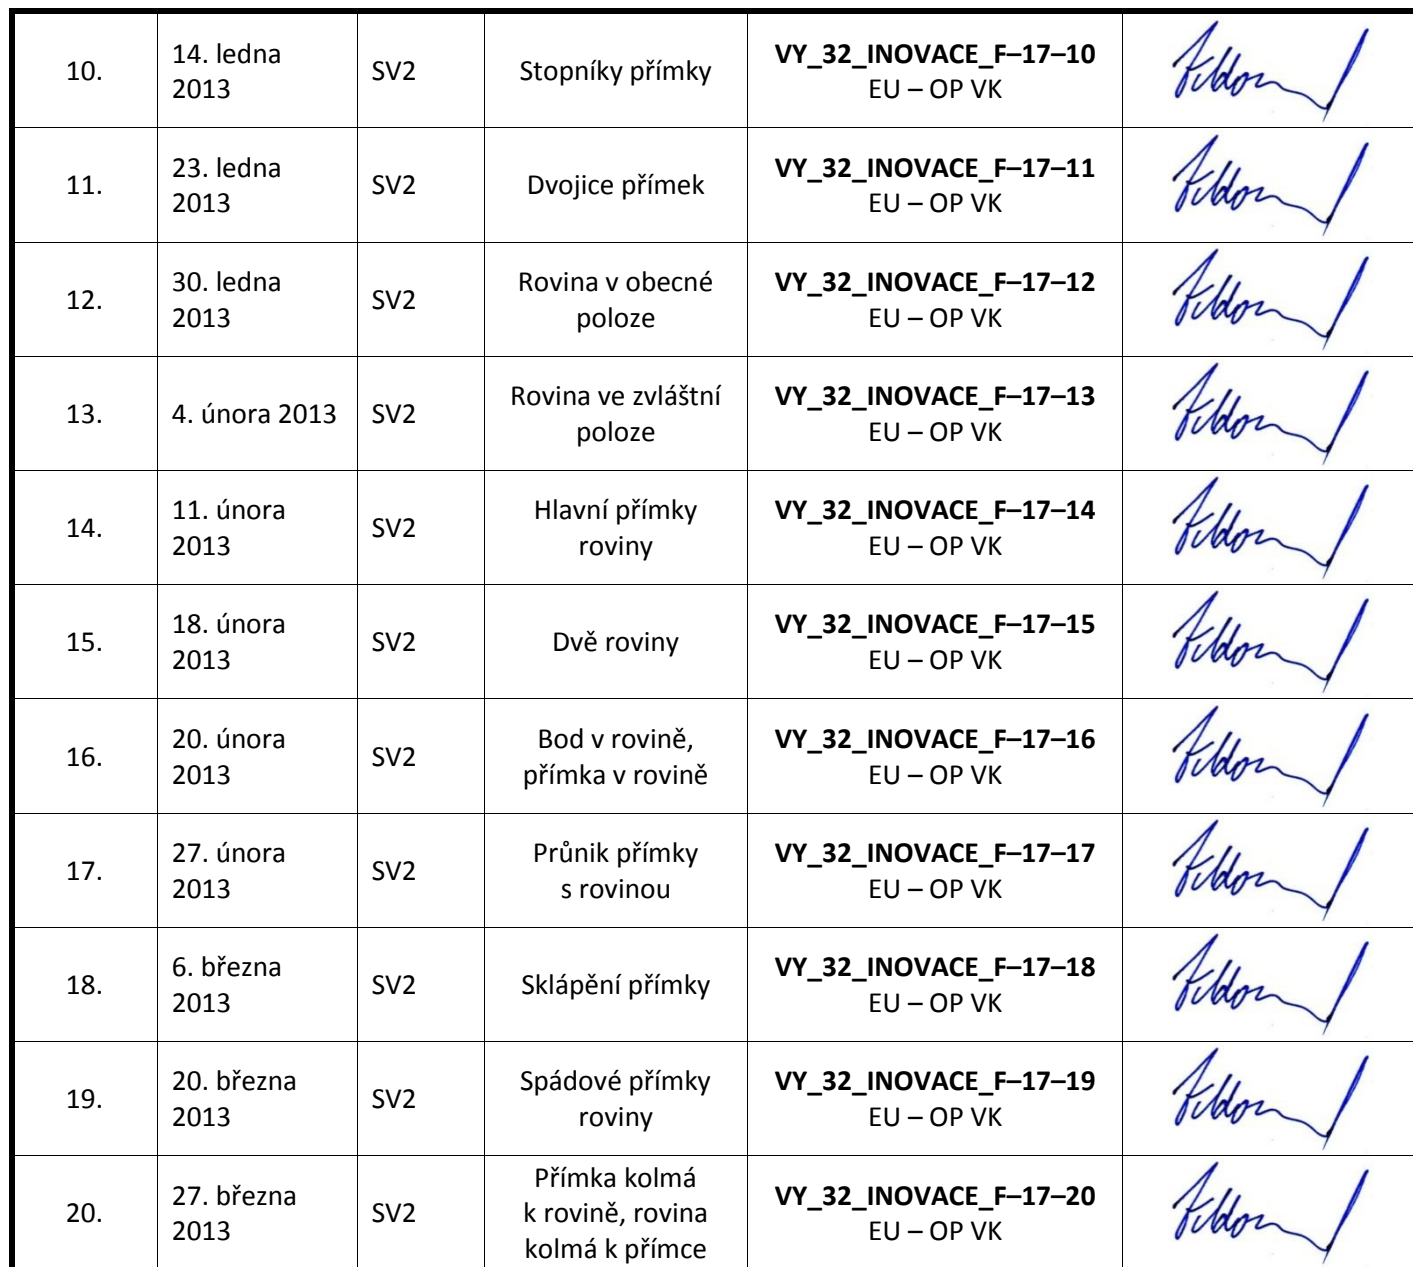 10.
14. ledna
2013
SV2
Stopníky přímky
VY_32_INOVACE_F–17–10
EU – OP VK
11.
23. ledna
2013
SV2
Dvojice přímek
VY_32_INOVACE_F–17–11
EU – OP VK
12.
30. ledna
2013
SV2
Rovina v obecné
poloze
VY_32_INOVACE_F–17–12
EU – OP VK
13.
4. února 2013
SV2
Rovina ve zvláštní
poloze
VY_32_INOVACE_F–17–13
EU – OP VK
14.
11. února
2013
SV2
Hlavní přímky
roviny
VY_32_INOVACE_F–17–14
EU – OP VK
15.
18. února
2013
SV2
Dvě roviny
VY_32_INOVACE_F–17–15
EU – OP VK
16.
20. února
2013
SV2
Bod v rovině,
přímka v rovině
VY_32_INOVACE_F–17–16
EU – OP VK
17.
27. února
2013
SV2
Průnik přímky
s rovinou
VY_32_INOVACE_F–17–17
EU – OP VK
18.
6. března
2013
SV2
Sklápění přímky
VY_32_INOVACE_F–17–18
EU – OP VK
19.
20. března
2013
SV2
Spádové přímky
roviny
VY_32_INOVACE_F–17–19
EU – OP VK
20.
27. března
2013
SV2
Přímka kolmá
k rovině, rovina
kolmá k přímce
VY_32_INOVACE_F–17–20
EU – OP VK